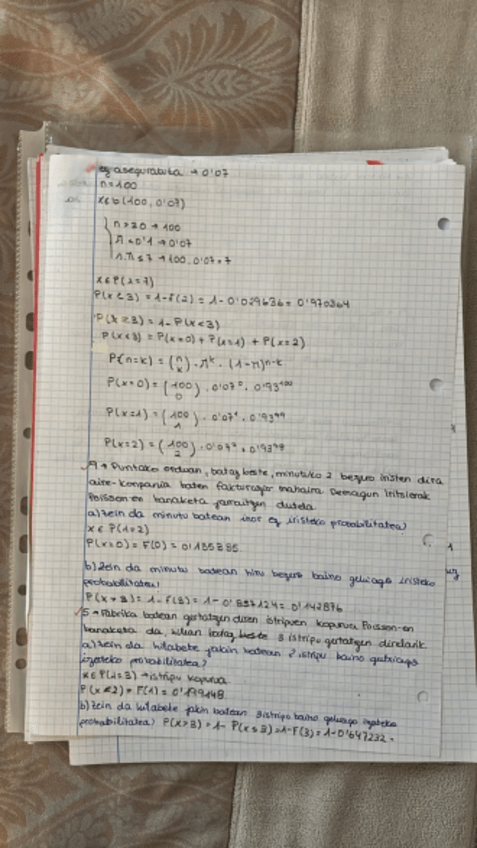 ez aseguratuta → 0'07
n=100
X∈b(100, 0'07)
n>20 → 100
π<0'1 → 0'07
n·π≤7 → 100·0'07=7
X∈P(λ=7)
P(X≥3) = 1-F(2) = 1-0'029636 = 0'970364
P(X≥3) = 1-P(X<3)
P(X<3) = P(X=0) + P(X=1) + P(X=2)
P(n=k) = (n k)·π^k·(1-π)^n-k
P(X=0) = (100 0)·0'07⁰·0'93¹⁰⁰
P(X=1) = (100 1)·0'07¹·0'93⁹⁹
P(X=2) = (100 2)·0'07²·0'93⁹⁸
Puntako orduan, bataz beste, minutuko 2 bezero iristen dira
aire-konpania baten fakturazio mahaira. Demagun iritsierak
Poisson-en banaketa jarraitzen dutela.
a) Zein da minutu batean inor ez iristeko probabilitatea?
X∈P(λ=2)
P(X=0) = F(0) = 0'135335
b) Zein da minutu batean hiru bezero baino gehiago iristeko
probabilitatea?
P(X>3) = 1-F(3) = 1-0'857124 = 0'142876
5 → Fabrika batean gertatzen diren istripuen kopurua Poisson-en
banaketa da, bataz beste 3 istripu gertatzen direlarik
a) Zein da hilabete jakin batean 2 istripu baino gutxiago
izateko probabilitatea?
X∈P(λ=3) → istripu kopurua
P(X<2) = F(1) = 0'199148
b) Zein da hilabete jakin batean 3 istripu baino gehiago izateko
probabilitatea? P(X>3) = 1- P(X≤3) = 1-F(3) = 1-0'647232